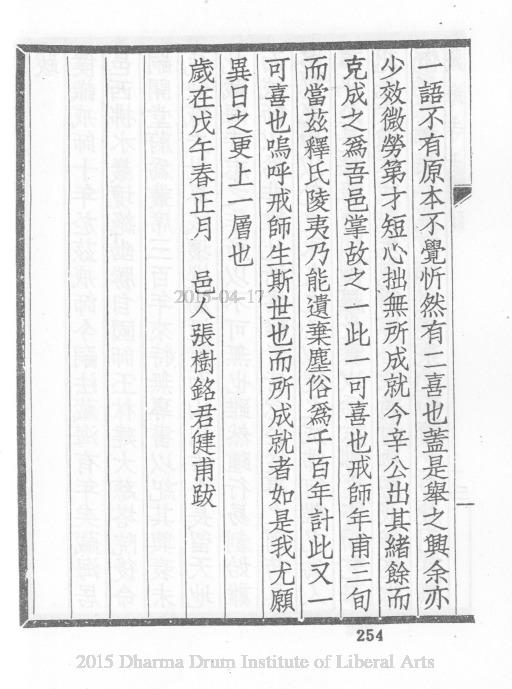 一語不有原本不覺忻然有二喜也蓋是舉之興余亦
少效微勞第才短心拙無所成就今辛公出其緒餘而
克成之爲吾邑掌故之一此一可喜也戒師年甫三旬
而當茲釋氏陵夷乃能遺棄塵俗爲千百年計此又一
可喜也嗚呼戒師生斯世也而所成就者如是我尤願
異日之更上一層也
歲在戊午春正月 邑人張樹銘君健甫跋
254
2015-04-17
2015 Dharma Drum Institute of Liberal Arts